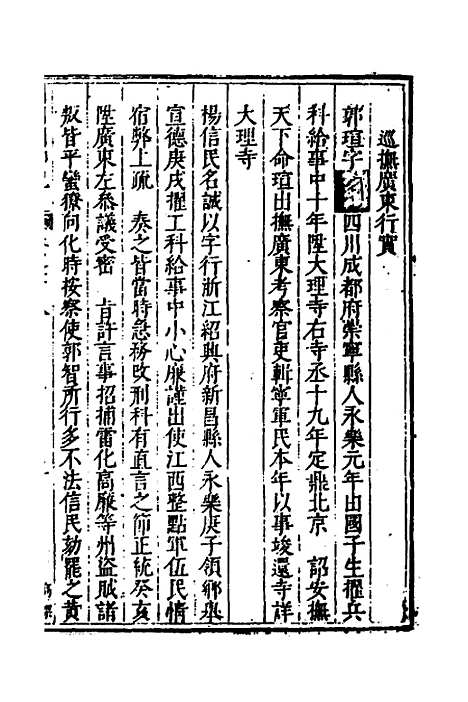 巡撫廣東行實
郭瑄字四川成都府崇寧縣人永樂元年由國子生擢兵
科給事中十年陞大理寺右寺丞十九年定鼎北京 詔安撫
天下命瑄出撫廣東考察官吏輯寧軍民本年以事竣還寺詳
大理寺
楊信民名誠以字行浙江紹興府新昌縣人永樂庚子領鄉舉
宣德庚戌擢工科給事中小心廉謹出使江西整點軍伍民情
宿弊上疏 奏之皆當時急務改刑科有直言之節正統癸亥
陞廣東左叅議受密 旨許言事招捕雷化高廉等州盜賊諸
叛皆平蠻獠向化時按察使郭智所行多不法信民劾罷之黃